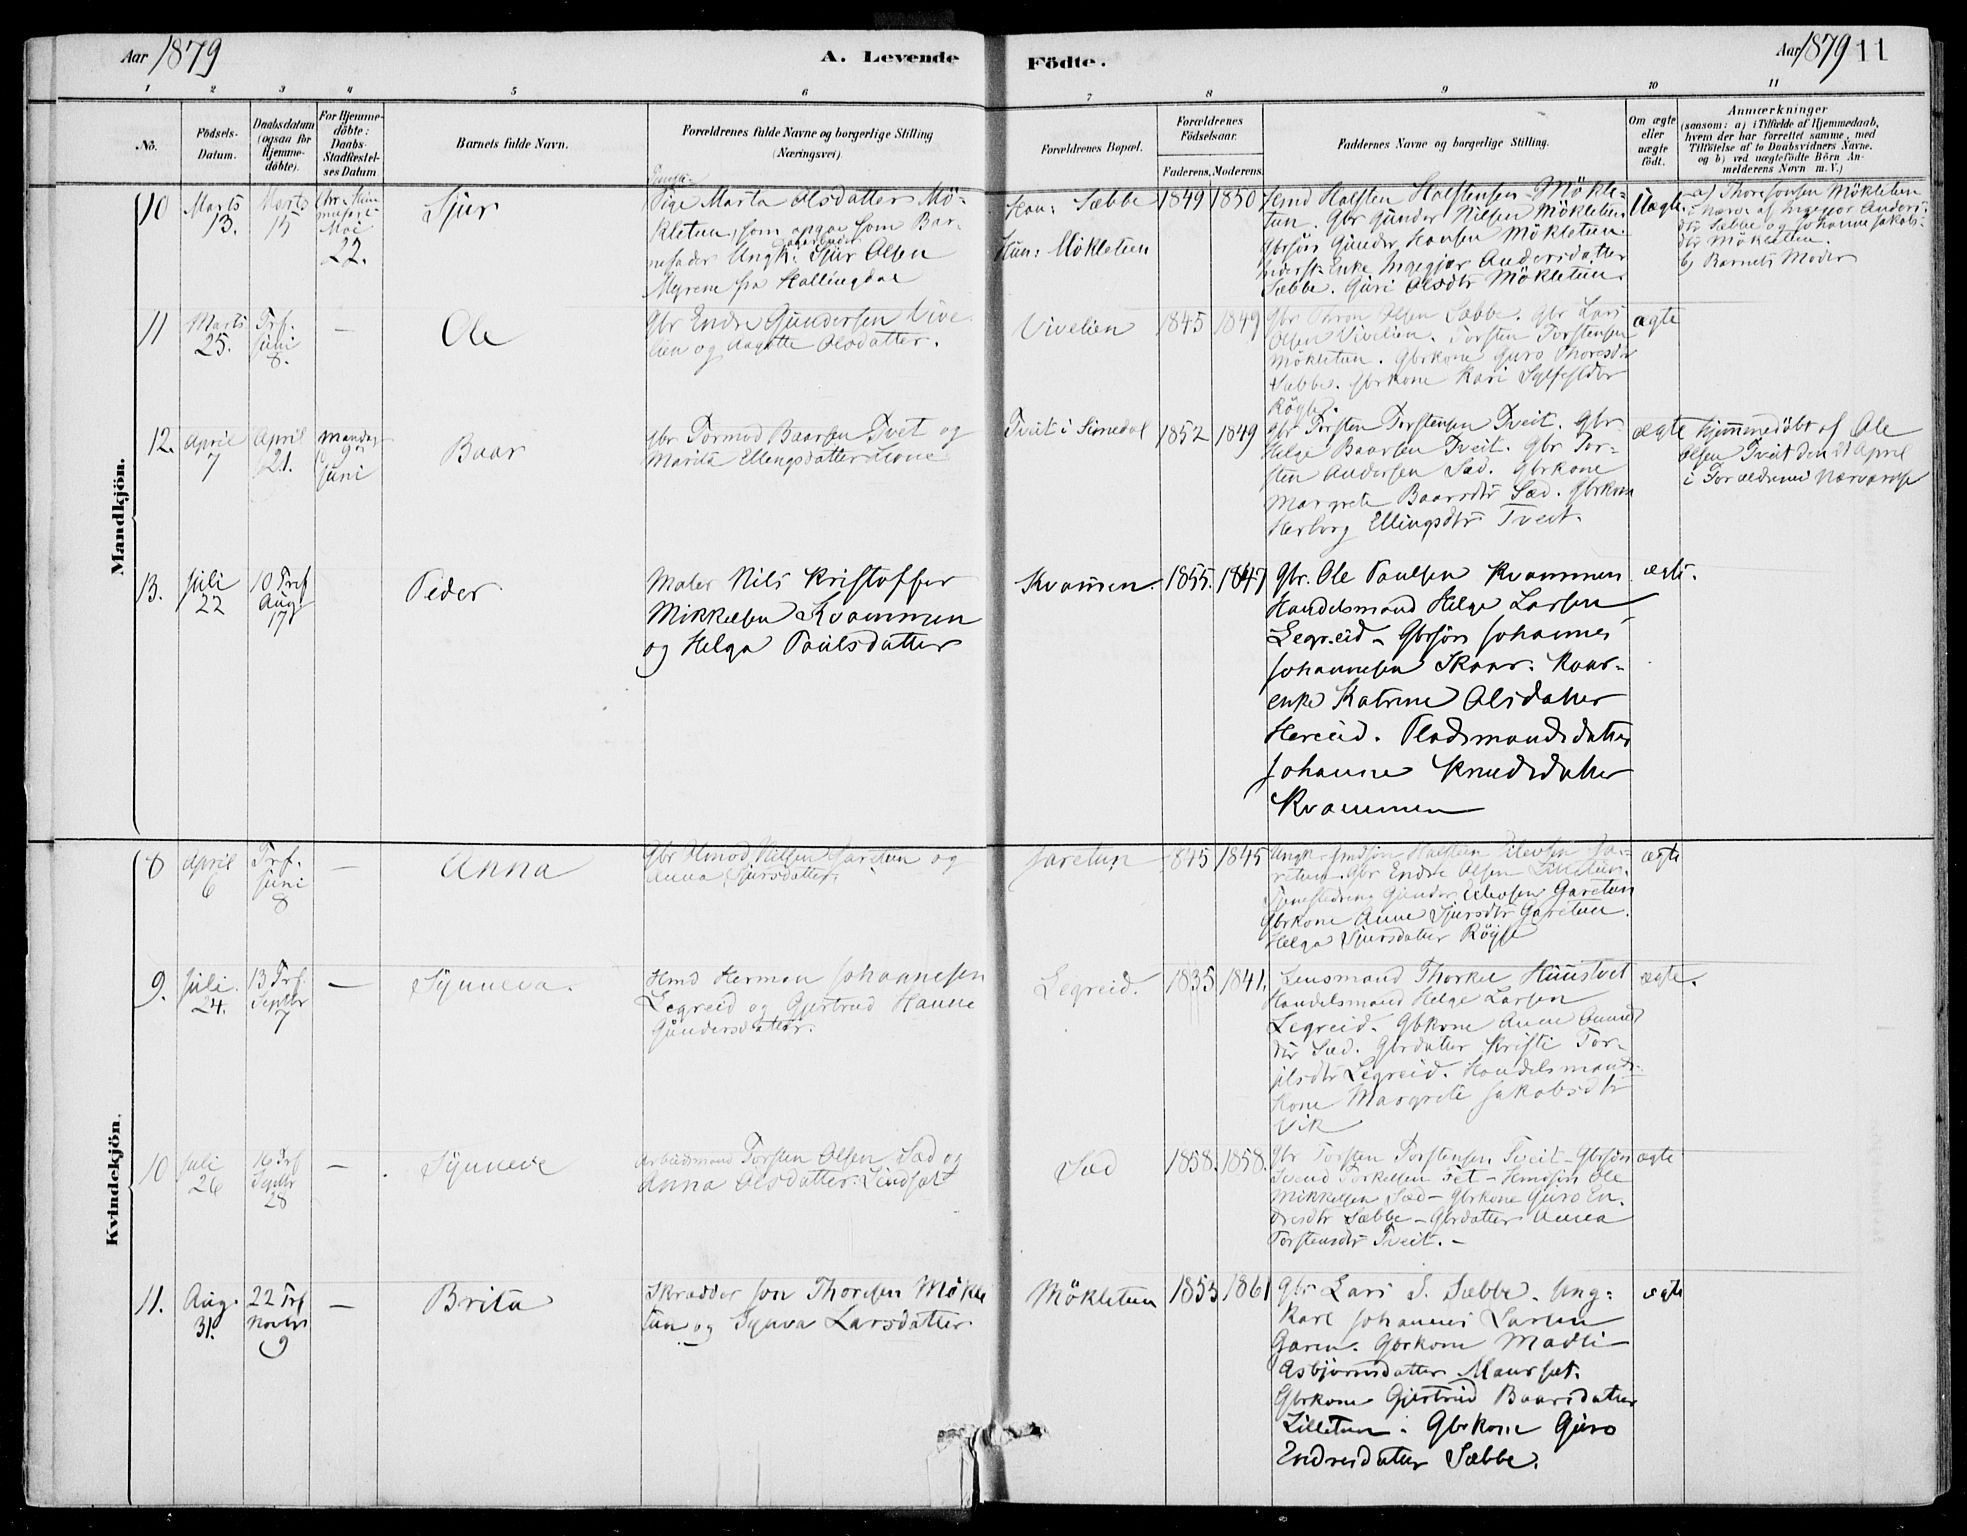 Aar 1879
A. Levende
Födte.
Aar 1879 11
1 2 3 4 5 6 7 8 9 10 11
No.
Födsels-
Datum.
Daabsdatum
(ogsaa för
Hjemme-
döbte).
For Hjemme-
döbte:
Daabs-
Stadfæstel-
ses Datum
Barnets fulde Navn.
Forældrenes fulde Navne og borgerlige Stilling
(Næringsvei)
Forældrenes Bopæl.
Forældrenes
Födselsaar.
Faderens. Moderens.
Faddernes Navne og borgerlige Stilling.
Om ægte
eller
uægte
födt.
Anmærkninger
(saasom: a) i Tilfælde af Hjemmedaab,
hvem der har forrettet samme, med
Tilföielse af to Daabsvidners Navne.
og b) ved uægtefödte Börn An-
melderens Navn m. V.)
Mandkjön.
10
Marts
13.
Marts
15
Mai
22.
Sjur
Pige Marta Olsdatter Mö-
kletun, som opgav som Bar-
nefader Ungk: Sjur Olsen
Myrene fra Hallingdal
Han: Sæbbe
Hun: Mökletun
1849 1850
Hmd Halsten Halstensen Mökle-
tun. Gbr Gunder Nilsen Mökletun
Gbrsön Gunder Hansen Mökletun
Enke Ingegjær Andersdatter
Sæbbe. Guri Olsdtr Mökletun.
Uægte.
a) Thore Jonsen Mökletun
i Nærv. af Ingegjær Anders-
dtr Sæbbe og Johanne Jakobs-
dtr Mökletun.
b) Barnets Moder
11
Marts
25.
Trf.
Juni
8.
—
Ole
Gbr Endre Gundersen Vive
lien og Aagotte Olsdatter.
Vivelien
1845 1849
Gbr Olsen Sæbbe. Gbr Lars
Olsen Vivelien. Torsten Torstensen
Mökletun. Gbrkone Guro Thoresdtr
Sæbbe. Gbrkone Kari
Röyse.
ægte
12.
April
7
April
21.
Mandag
9de
Juni
Baar
Gbr Tormod Baarsen Tveit og
Marita Ellingsdatter
Tveit i Simedal
1852 1849
Gbr Torsten Torstensen Tveit. Gbr
Helge Baarsen Tveit. Gbr Tor-
sten Andersen Sæd. Gbrkone
Margrete Baarsdtr Sæd. Gbrkone
Herborg Ellingsdtr Tveit.
ægte
Hjemmedöbt af Ole
Olsen Tveit den 21 April
i Forældrenes Nærværelse
13.
Juli
22
10 Trf
Aug.
17
Peder
Maler Nils Kristoffer
Mikkelsen Kvammen
og Helga Paulsdatter
Kvammen.
1855. 1847
Gbr. Ole Paulsen Kvammen
Handelsmand Helge Larsen
Legreid – Gbrsön Johannes
Johannesen Skaar. Kaar-
enke Katrine Olsdatter
Hereid. Pladsmandsdatter
Johanne Knudsdatter
Kvammen
ægte.
Kvindekjön.
8
April
6
Trf.
Juni
8
—
Anna
Gbr Asmod Nilsen Garetun og
Anna Sjursdatter.
Garetun
1845 1845
Ungk. Hmdsön Halsten Elevsen Ga-
retun. Gbr Endre Olsen Lilletun.
Tjenestedreng Gunder Elevsen Garetun
Gbrkone Anne Sjursdtr Garetun.
Helga Sjursdatter Röyse
ægte
9.
Juli
24.
13 Trf.
Septbr
7
—
Synneva.
Hmd Herman Johannesen
Legreid og Gjertrud Hanne
Gundersdatter.
Legreid.
1835 1841.
Lensmand Thorkel Hunstvet
Handelsmand Helge Larsen
Legreid. Gbkone Anne Amund
dtr Sæd. Gbrdatter Kristi Tor-
gilsdtr Legreid. Handelsmands-
kone Margrete Jakobsdtr
Vik
ægte.
10
Juli
26
16 Trf
Septbr
28
—
Synneve
Arbeidsmand Torsten Olsen Sæd og
Anna Olsdatter Lindset
Sæd
1858. 1858.
Gbr Torsten Torstensen Tveit – Gbrsön
Svend Torkelsen Fet – Hmdsön Ole
Mikkelsen Sæd – Gbrkone Guro En-
dresdtr Sæbbe – Gbrdatter Anna
Torstensdtr Tveit. –
ægte
11.
Aug.
31.
22 Trf
Novbr
9
—
Brita
Skrædder Jon Thoresen Mökle
tun og Synva Larsdatter
Mökletun
1853 1861
Gbr Lars S. Sæbbe. Ung-
karl Johannes Larsen
Garen. Gbrkone Madli
Asbjörnsdatter Maurset.
Gbrkone Gjertrud Baarsdatter
Lilletun. Gbrkone Guro
Endresdatter Sæbbe.
ægte